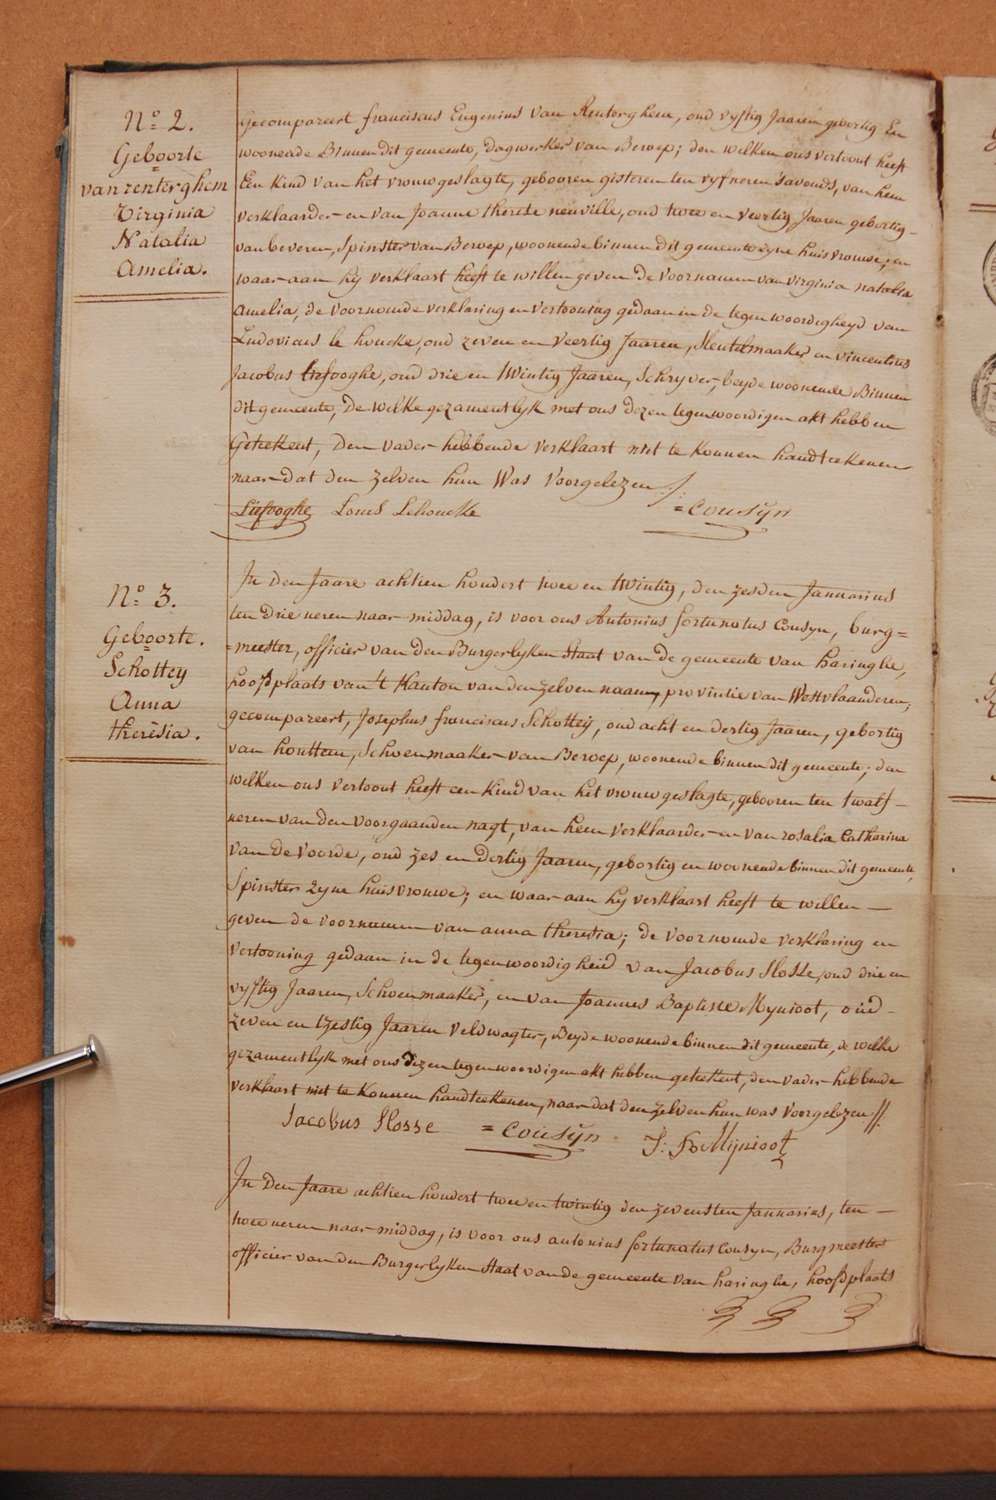 N.º 2.
Geboorte
van renterghem
Virginia
Natalia
Amelia.
Gecompareert franciscus Eugenius van Renterghem, oud vyftig Jaaren geboortig En
woonende Binnen dit gemeente, dagwerker van Beroep; den welken ons vertoont heeft
Een kind van het vrouwgeslagte, gebooren gisteren ten vyf ueren 's avonds, van hem
verklaarder en van Joanne therese neuville, oud twee en veertig Jaaren geboortig
van beveren, Spinster van Beroep, woonende binnen dit gemeente zyne huisvrouwe, en
waar-aan hy verklaart heeft te willen geven de voornamen van virginia natalia
Amelia, de voornoemde verklaring en vertooning gedaan in de tegenwoordigheyd van
Ludovicus le houcke, oud zeven en veertig Jaaren, Sleutelmaaker en vincentius
Jacobus liefooghe, oud drie en twintig Jaaren, Schryver, beyde woonende Binnen
dit gemeente, De welke gezamentlyk met ons dezen tegenwoordigen akt hebben
Geteekent, Den vader hebbende verklaart niet te konnen handteekenen
naar dat den zelven hun Was Voorgelezen //.
Liefooghe Louis Lehoucke = Cousyn
N.º 3.
Geboorte.
Schottey
Anna
therèsia.
In den Jaare achtien hondert twee en twintig, den zesden Januarius
ten drie ueren naar-middag, is voor ons Antonius fortunatus Cousyn, burg=
=meester, officier van den Burgerlyken Staat van de gemeente van haringhe,
hoofdplaats van 't Kanton van den zelven naam, provintie van Westvlaanderen,
gecompareert, Josephus franciscus Schottey, oud acht en dertig Jaaren, gebortig
van houttem, Schoenmaaker van Beroep, woonende binnen dit gemeente; den
welken ons vertoont heeft een kind van het vrouwgeslagte, gebooren ten twalf
ueren van den voorgaanden nagt, van hem verklaarder en van rosalia Catharina
van de Voorde, oud zes en dertig Jaaren, gebortig en woonende binnen dit gemeente,
Spinster zyne huisvrouwe; en waar aan hy verklaart heeft te willen
geven de voornamen van anna theresia; de voornoemde verklaring en
vertooning gedaan in de tegenwoordigheid van Jacobus Slosse, oud drie en
vyftig Jaaren, Schoenmaaker, en van Joannes Baptiste Mynioot, oud
zeven en tzestig Jaaren veldwagter, Beyde woonende binnen dit gemeente, de welke
gezamentlyk met ons dezen tegenwoordigen akt hebben geteekent, den vader hebbende
verklaart niet te Konnen handteekenen, naar dat den zelven hun was voorgelezen //.
Jacobus Slosse = Cousyn J: B Mijnioot
In den Jaare achtien hondert twee en twintig den zevensten Januarius, ten
twee ueren naar-middag, is voor ons antonius fortunatus Cousyn, Burgmeester
officier van den Burgerlyken Staat van de gemeente van haringhe, hoofdplaats